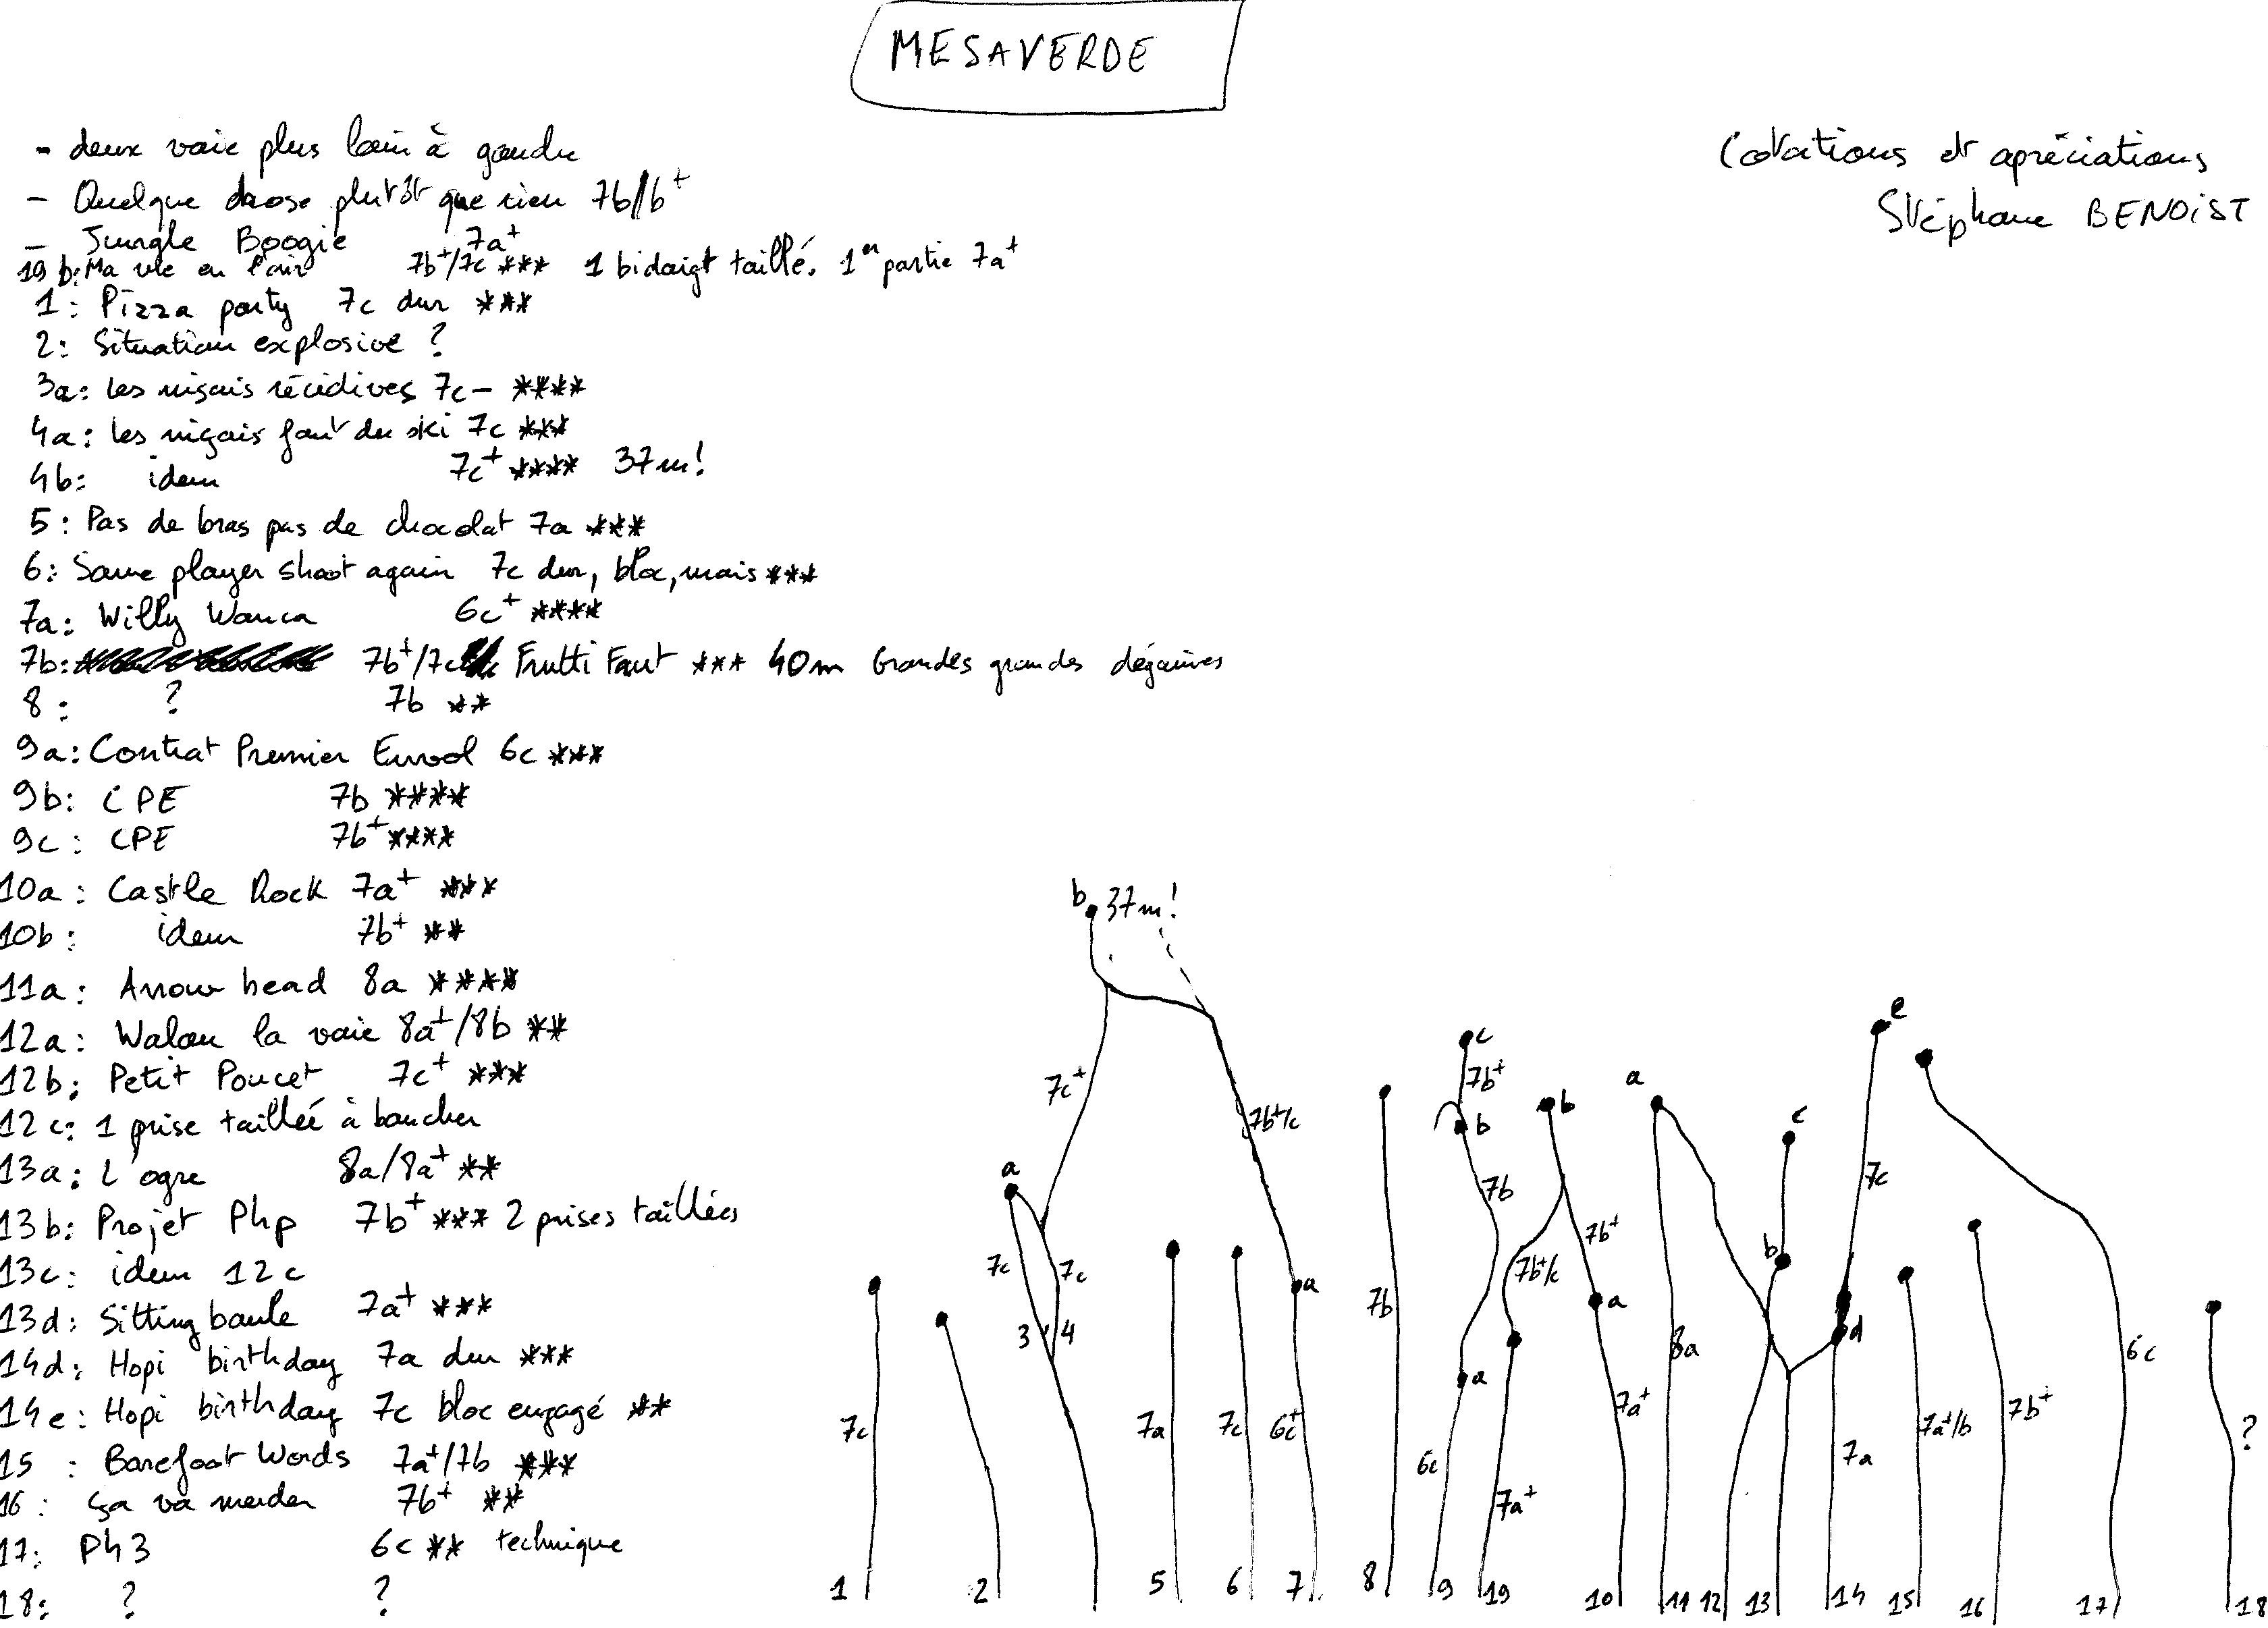 MESAVERDE
- deux voie plus loin à gauche
- Quelque chose plutôt que rien 7b/b+
- Jungle Boogie 7a+
19b: Ma vie en l'air 7b+/7c *** 1 bidoigt taillé. 1er partie 7a+
1: Pizza party 7c dur ***
2: Situation explosive ?
3a: les niçois récidives 7c- ****
4a: les niçois font du ski 7c ***
4b: idem 7c+ **** 37m!
5: Pas de bras pas de chocolat 7a ***
6: Same player shoot again 7c dur, bloc, mais ***
7a: Willy Wonca 6c+ ****
7b: 7b+/7c Frutti Faut *** 40m Grandes grandes dégaines
8: ? 7b **
9a: Contrat Premier Envol 6c ***
9b: CPE 7b ****
9c: CPE 7b+ ****
10a: Castle Rock 7a+ ***
10b: idem 7b+ **
11a: Arrow head 8a ****
12a: Walou la voie 8a+/8b **
12b: Petit Poucet 7c+ ***
12c: 1 prise taillée à boucher
13a: L'ogre 8a/8a+ **
13b: Projet Php 7b+ *** 2 prises taillées
13c: idem 12c
13d: Sitting boule 7a+ ***
14d: Hopi birthday 7a dur ***
14e: Hopi birthday 7c bloc engagé **
15 : Barefoot Words 7a+/7b ***
16: ça va merder 7b+ **
17: Ph3 6c ** technique
18: ? ?
Cotations et apréciations
Stéphane BENOIST
b 37m!
e
c
7b+
a
b
b
c
7c+
7b+/c
a
7b
7c
b
7b+
7c
7c
7b+/c
a
7b
a
3 4
d
8a
6c
a
7a+
7c
7a
7c
6c+
6c
7a
7a+/b
7b+
?
7a+
1 2 5 6 7 8 9 19 10 11 12 13 14 15 16 17 18